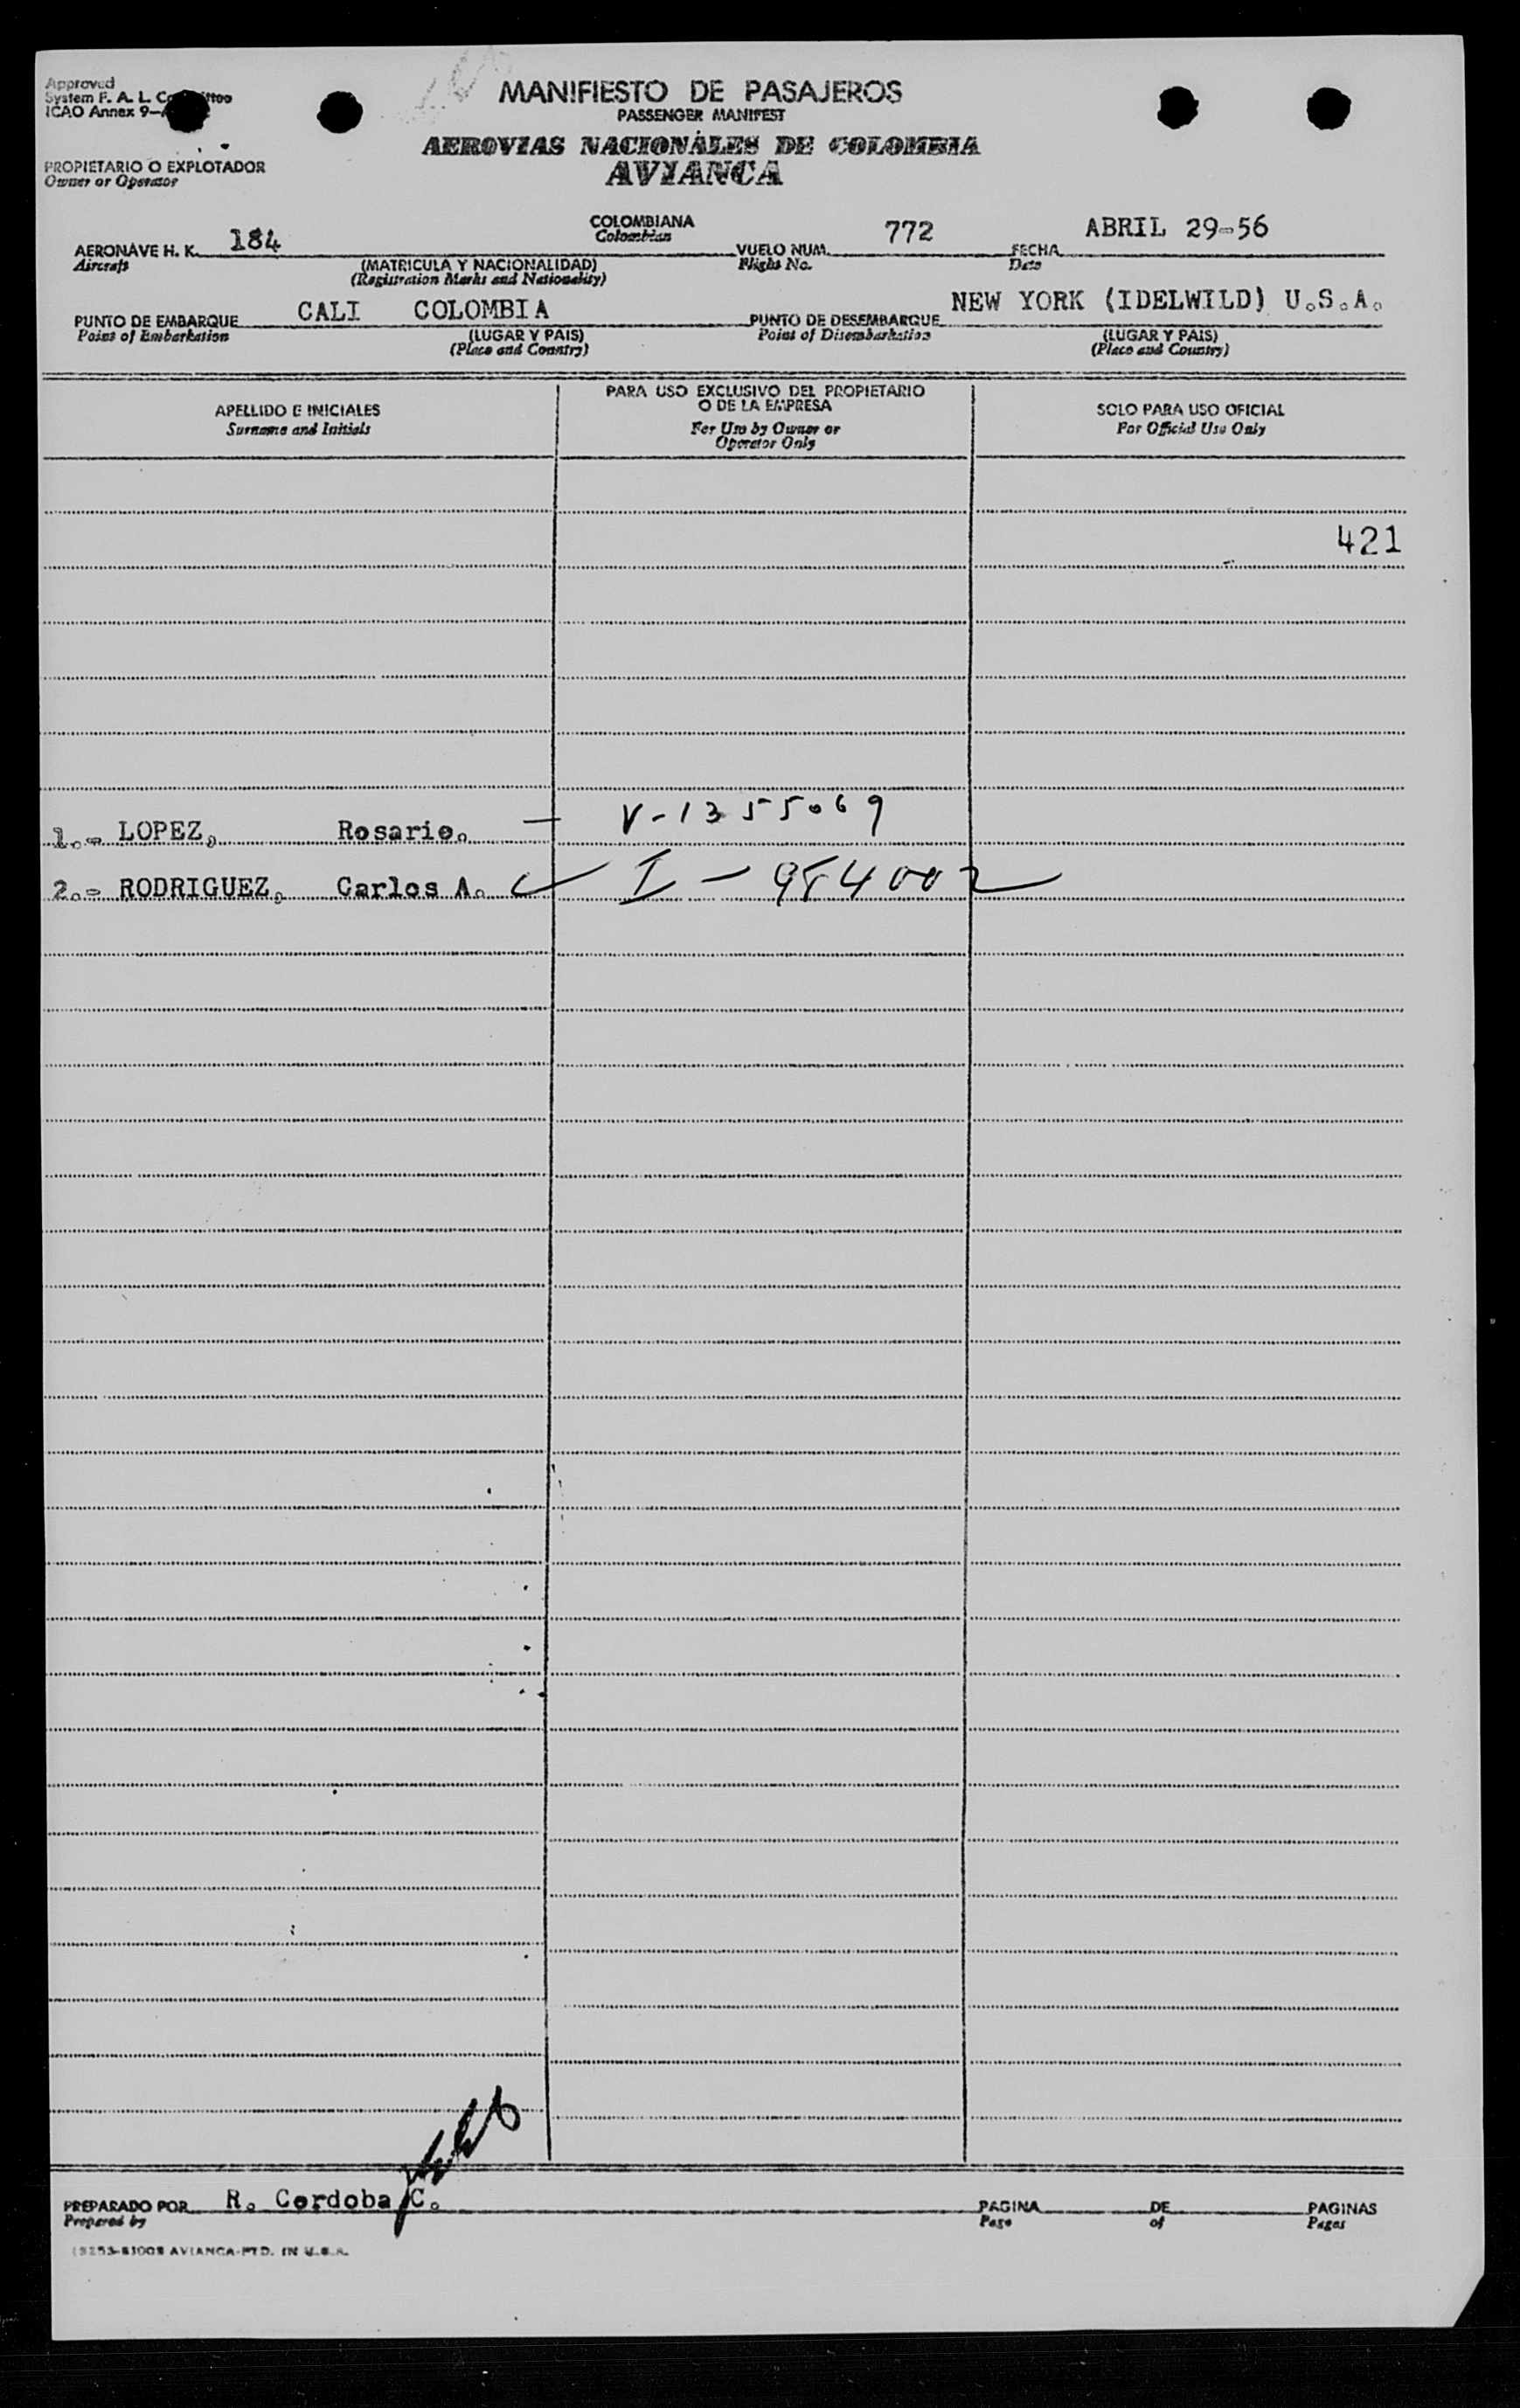 Approved
System F. A. L.
ICAO Annex 9—
MANIFIESTO DE PASAJEROS
PASSENGER MANIFEST
AEROVIAS NACIONALES DE COLOMBIA
AVIANCA
PROPIETARIO O EXPLOTADOR
Owner or Operator
AERONAVE H. K. 184 COLOMBIANA VUELO NUM. 772 FECHA ABRIL 29-56
Aircraft Colombian Flight No. Date
(MATRICULA Y NACIONALIDAD)
(Registration Marks and Nationality)
PUNTO DE EMBARQUE CALI COLOMBIA PUNTO DE DESEMBARQUE NEW YORK (IDELWILD) U.S.A.
Point of Embarkation (LUGAR Y PAIS) Point of Disembarkation (LUGAR Y PAIS)
(Place and Country) (Place and Country)
APELLIDO E INICIALES
Surname and Initials
PARA USO EXCLUSIVO DEL PROPIETARIO
O DE LA EMPRESA
For Use by Owner or
Operator Only
SOLO PARA USO OFICIAL
For Official Use Only
421
1.- LOPEZ, Rosario. — V-1355069
2.- RODRIGUEZ, Carlos A. I - 984002
PREPARADO POR R. Cordoba C. PAGINA DE PAGINAS
Prepared by Page of Pages
AVIANCA-PTD. IN U.S.A.